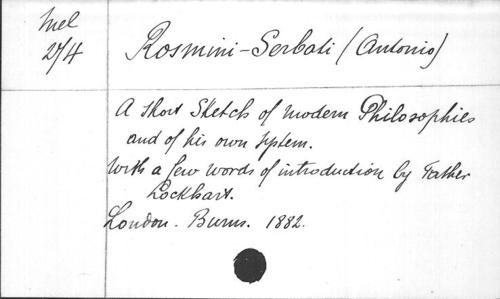 Mel
27/4
Rosmini-Serbati (Antonio)
A short Sketch of modern Philosophies
and of his own system.
With a few words of introduction by Father
Lockhart.
London. Burns. 1882.